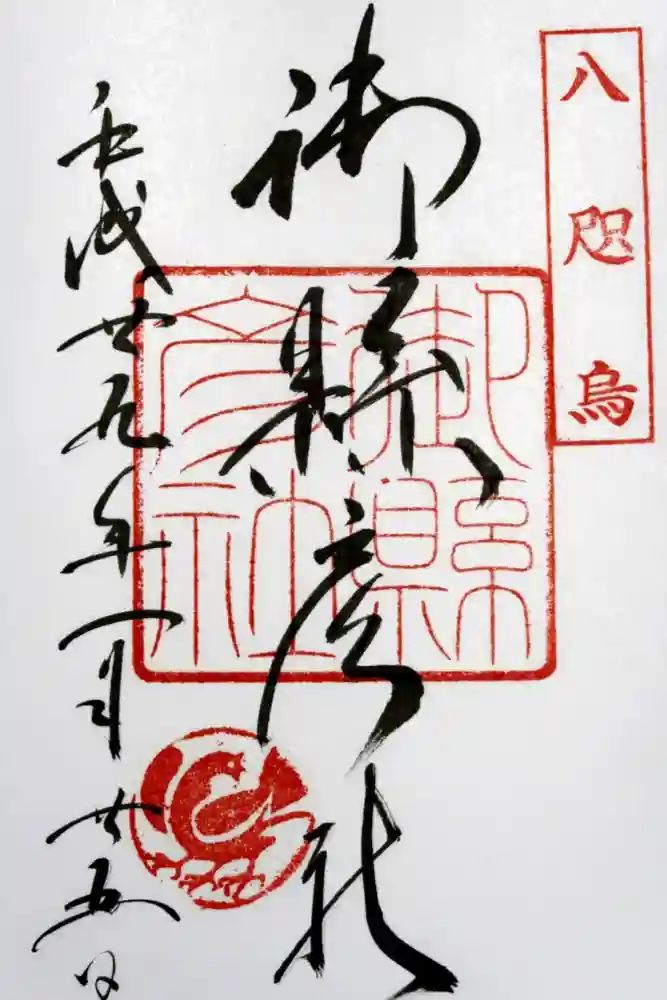 八咫烏
御縣彦社
御縣
彦社
平成廿九年一月廿五日